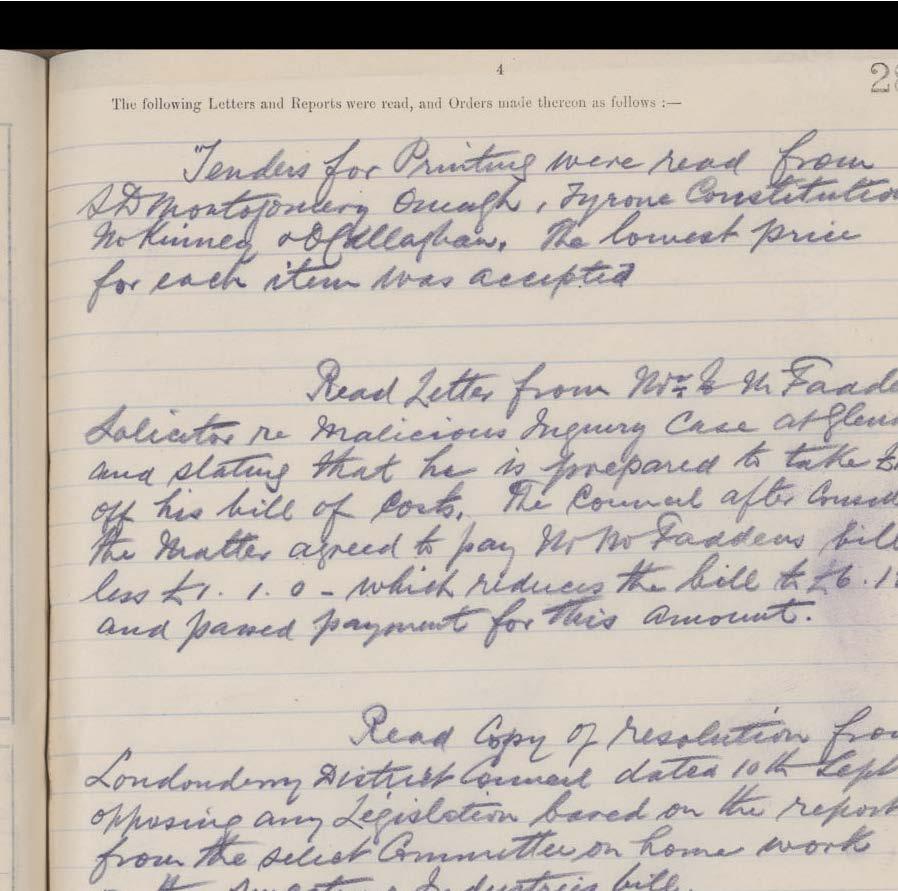 4
28
The following Letters and Reports were read, and Orders made thereon as follows :—
"Tenders for Printing were read from
SD Montgomery Omagh, Tyrone Constitution
McKinney & O'Callaghan. The lowest price
for each item was accepted
Read Letter from Mr E McFadde
Solicitor re Malicious Injury Case at Glen
and stating that he is prepared to take £
off his bill of Costs. The Council after Consid
the Matter agreed to pay Mr McFaddens bill
less £1. 1. 0 - which reduces the bill to £6. 1
and passed payment for this amount.
Read Copy of resolution from
Londonderry District Council dated 10th Sept
opposing any Legislation based on the report
from the select Committee on home work
Industries bill.